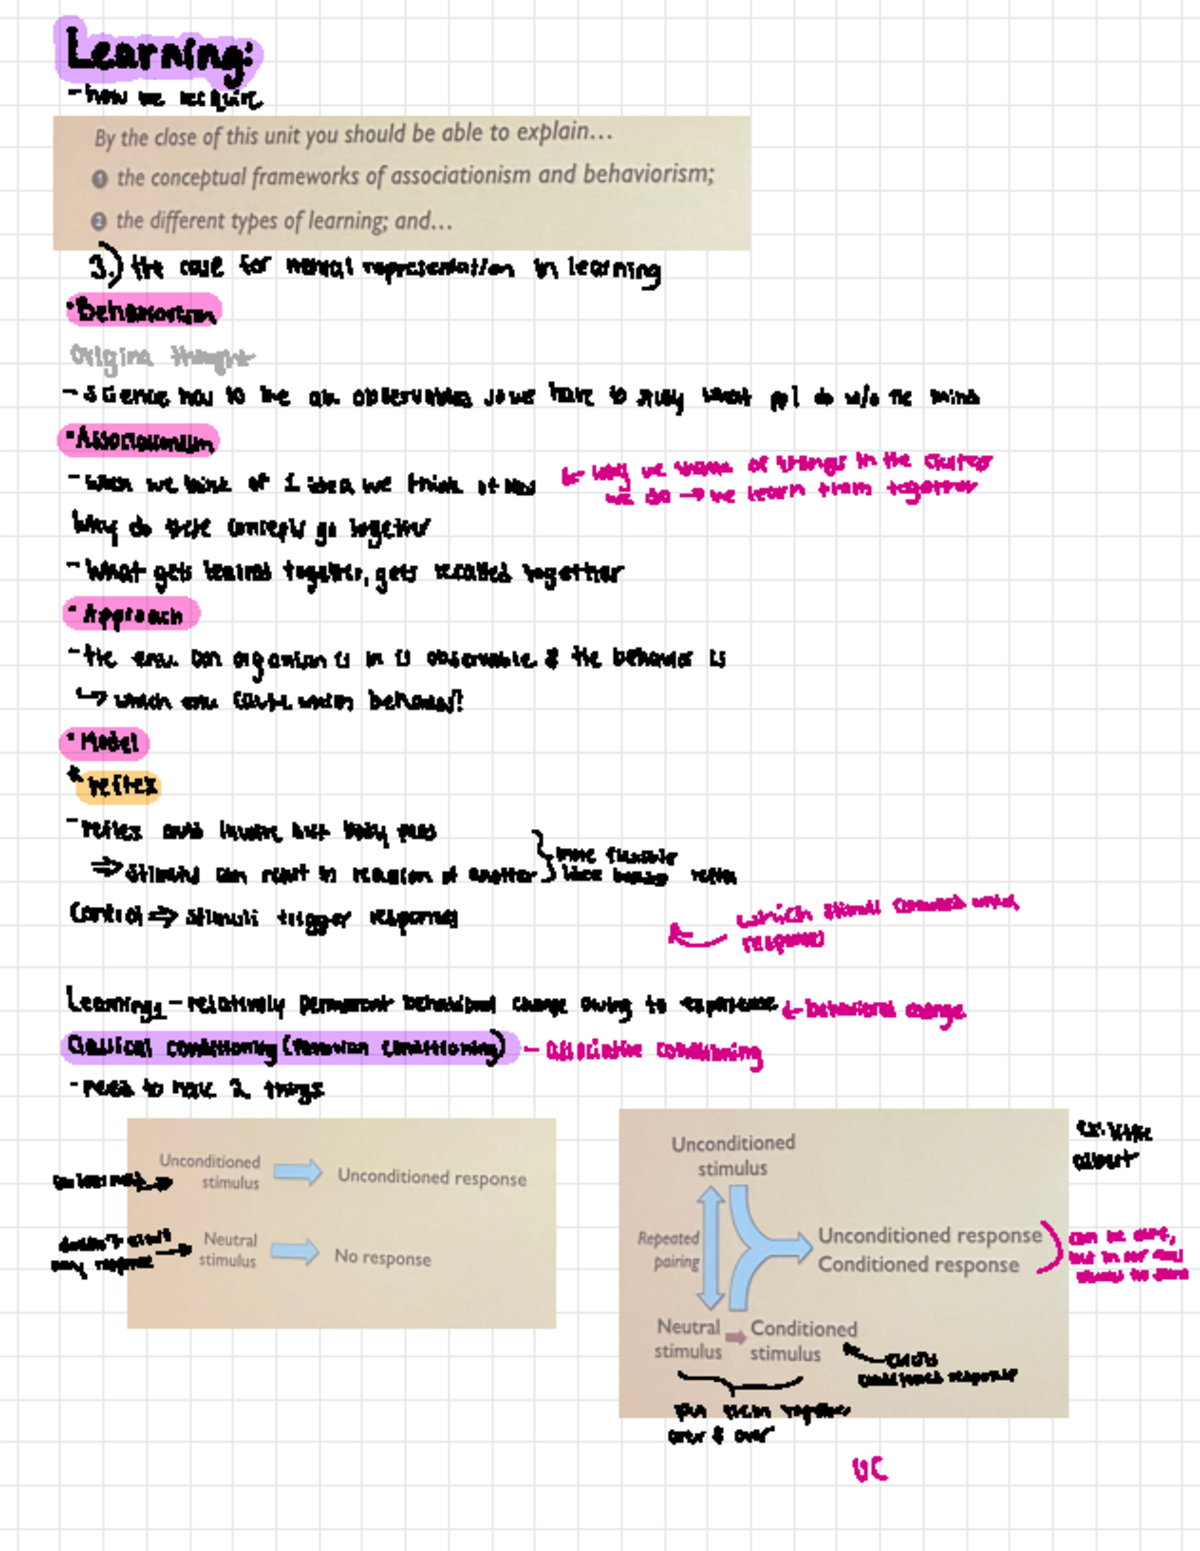 Learning:
- how we acquire
By the close of this unit you should be able to explain...
1 the conceptual frameworks of associationism and behaviorism;
2 the different types of learning; and...
3.) the case for mental representation in learning
• Behaviorism
Original thought
- science has to be on observables so we have to study what ppl do w/o the mind
• Associationism
- when we think of 1 idea we think of
← why we think of things in the
we do → we learn them together
Why do these concepts go together
- What gets learned together, gets recalled together
• Approach
- the env. an organism is in is observable & the behavior is
↳ which env cause which behavior?
• Model
* reflex
- reflex
⇒ stimulus can result in reaction of another
more flexible
reflex
Control ⇒ stimuli trigger responses
which stimuli which
responses
Learning: - relatively permanent behavioral change owing to experience
← behavioral change
Classical conditioning (Pavlovian conditioning) - associative conditioning
- need to have 2 things
Unconditioned stimulus → Unconditioned response
doesn't elicit
any response →
Neutral stimulus → No response
Unconditioned
stimulus
Repeated
pairing
Unconditioned response
Conditioned response
can be diff,
but in
Neutral
stimulus
Conditioned
stimulus
conditioned response
put them together
over & over
ex. little
albert
UC